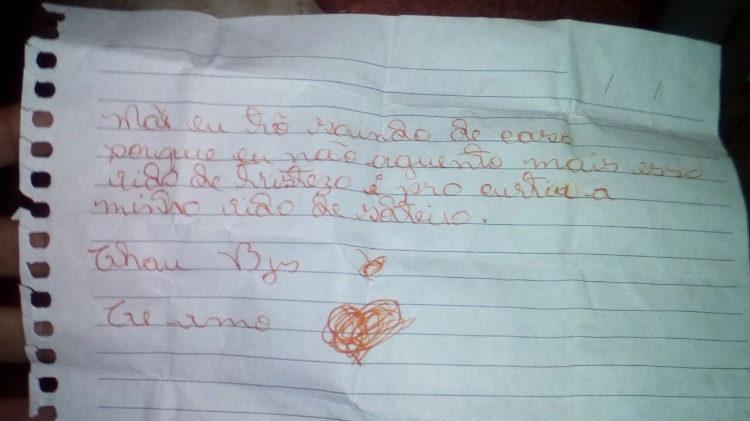 Mãe eu tô saindo de casa
porque eu não aguento mais essa
vida de tristeza é pra curtir a
minha vida de solteiro.
Tchau Bjs
Te amo